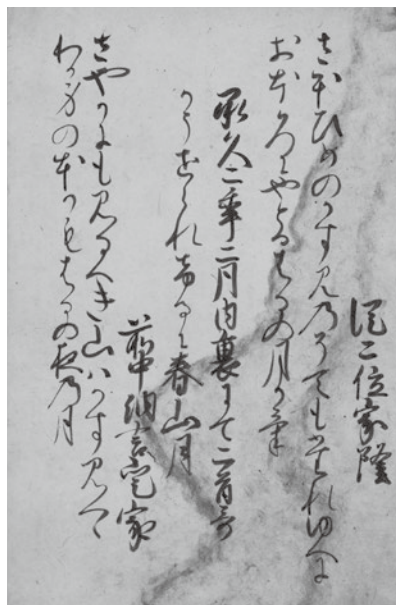 従二位家隆
さほひめのかすみのそてもたれゆへに
おほろにやとるはるの月かけ
承久二年二月内裏にて二首哥
かうせられけるに春山月
前中納言定家
さやかにもみるへき山はかすみつゝ
わか身のほかもはるの夜の月